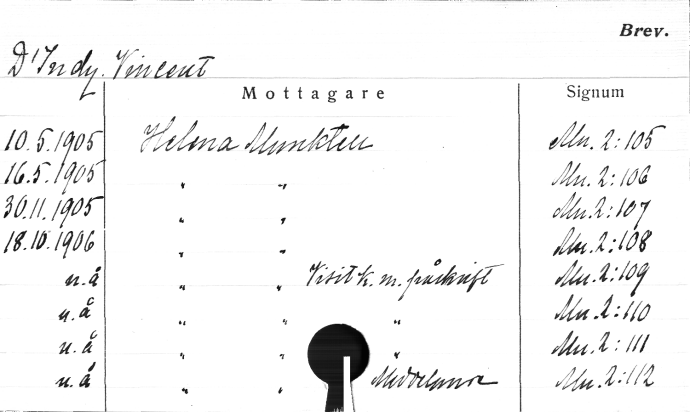 Brev.
D'Indy, Vincent
Mottagare Signum
10.5.1905 Helena Munktell Mu. 2:105
16.5.1905 " " Mu. 2:106
30.11.1905 " " Mu. 2:107
18.10.1906 " " Mu. 2:108
u.å " " Visitk. m. påskrift Mu. 2:109
u.å " " " Mu. 2:110
u.å " " " Mu. 2:111
u.å " " Meddelande Mu. 2:112